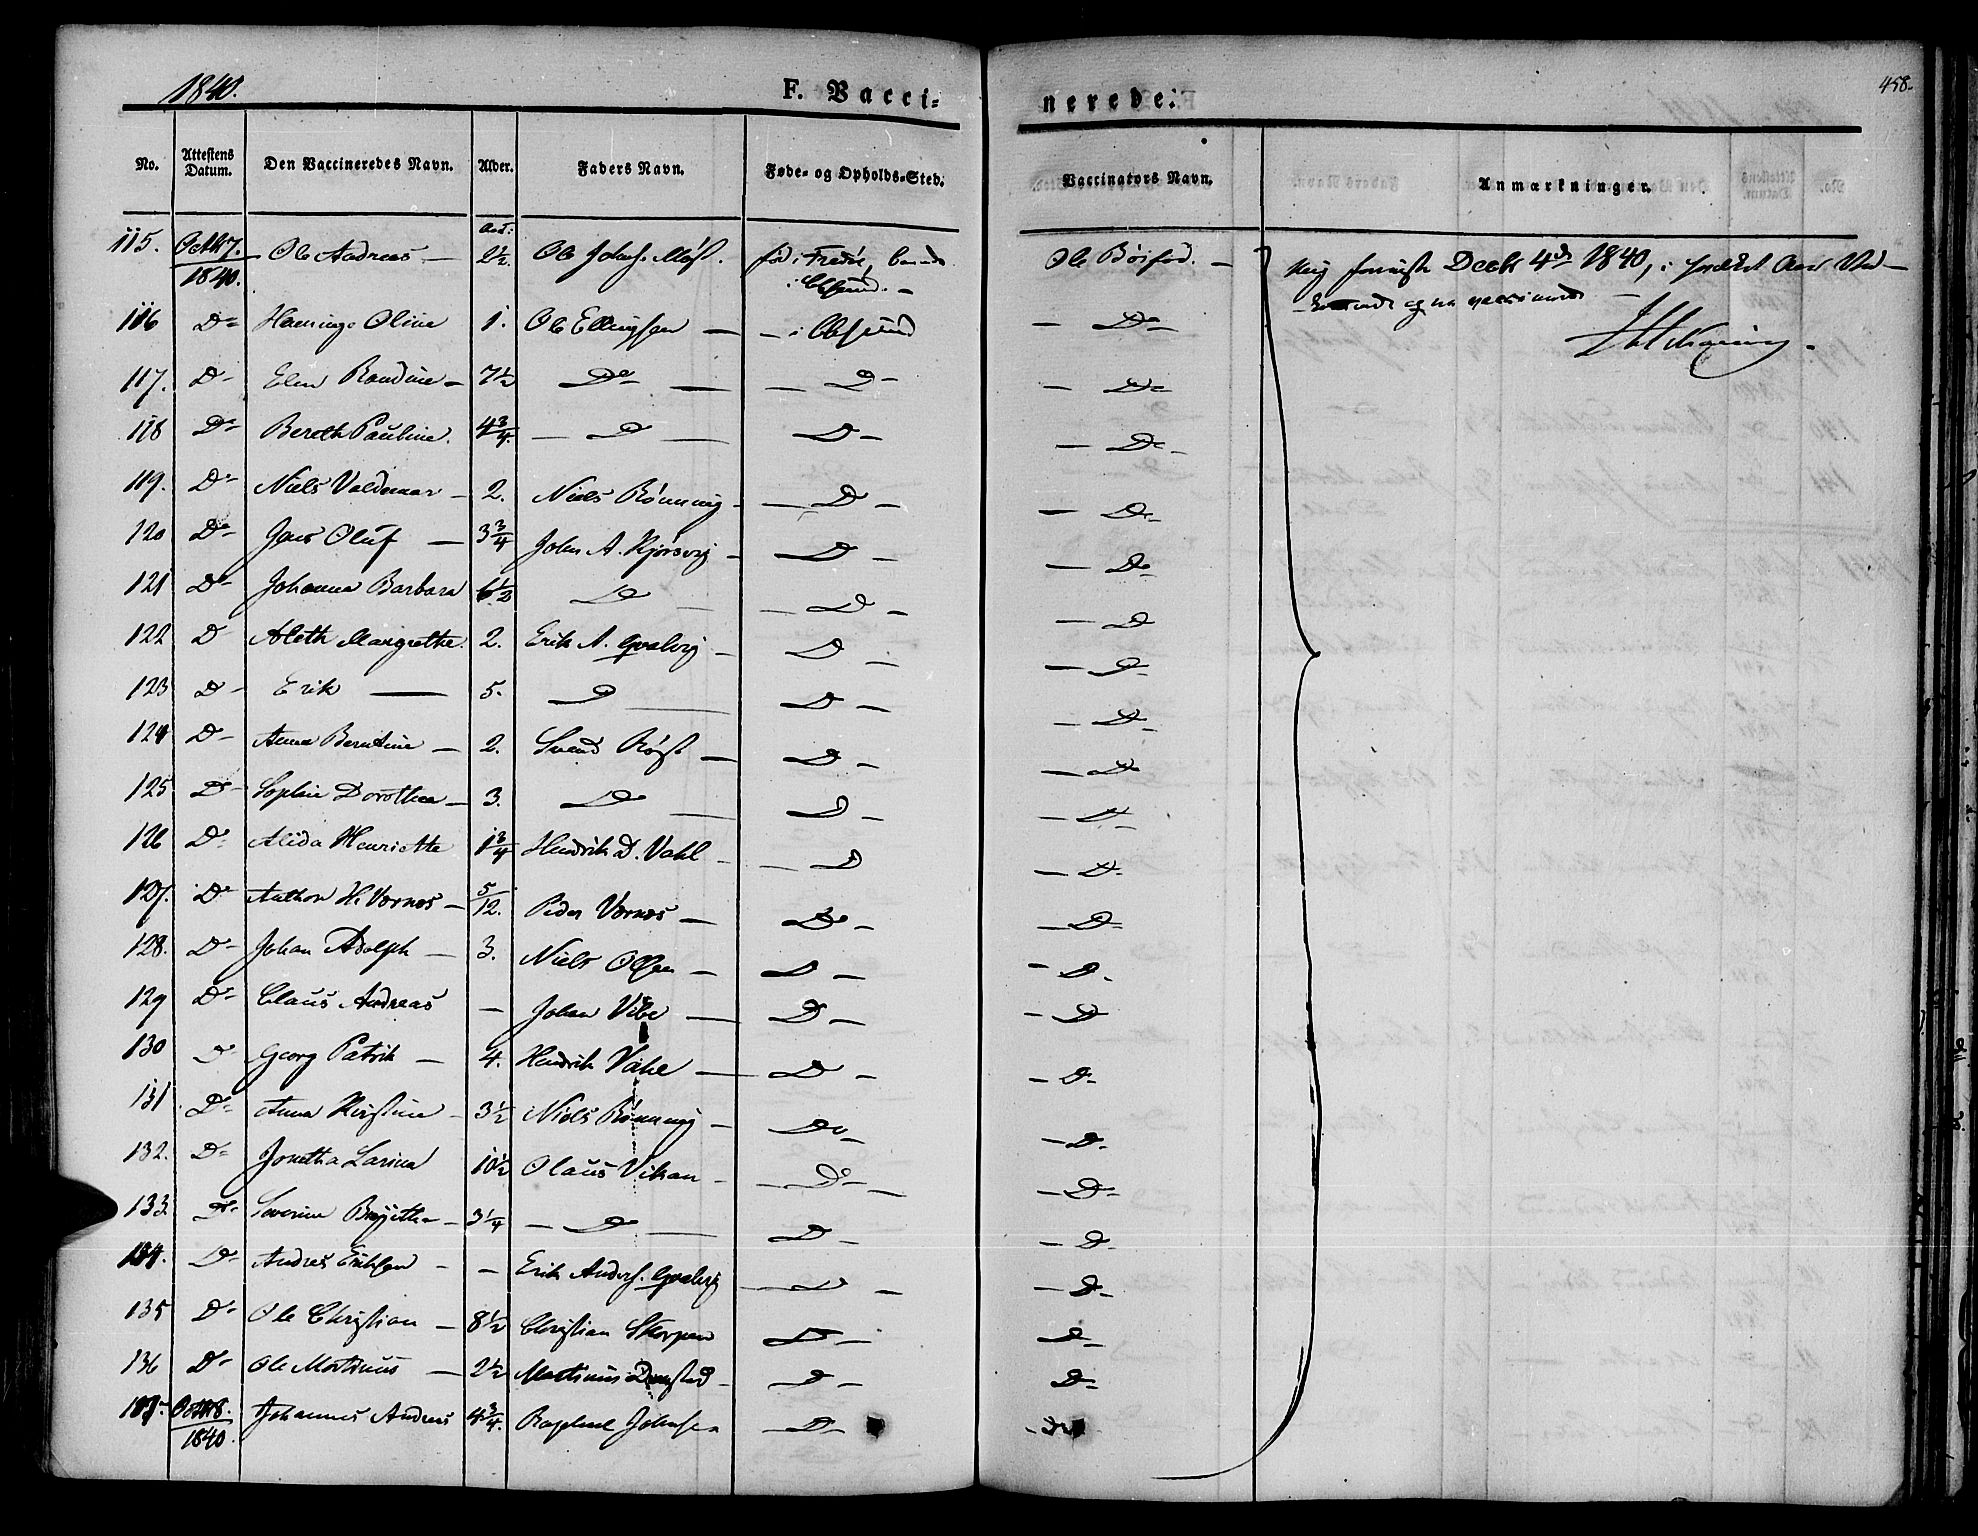 1840.
F. Vacci=
nerede:
458.
No. Attestens Datum. Den Vaccineredes Navn. Alder. Faders Navn. Føde- og Opholds-Sted. Vaccinators Navn. Anmærkninger.
Aar.
115. Octbr 7. 1840. Ole Andreas — 2½. Ole Johns. fød i boende i — Ole —
Decbr 4de 1840, i
og
116 Do Oline 1. Ole Ellingsen — — i — Do
117. D- Elen Randine — 7½ Do — — D- — Do
118 Do Bereth Pauline. 4¾. — D — D- — Do
119. Do Niels Valdemar — 2. Niels Rönning — — D — — Do
120 Do Jens Oluf — 3¾ John A. Kjörsvig — — D — — Do
121 Do Johanna Barbara 6½ D — — D — — D
122 D Aleth Margrethe. 2. Erik A. Qvalvig — D — — D
123 D- Erik — 5. D — D — — D
124 D- Anna Berntine — 2. Svend — D — — D
125 D- Sophie Dorothea — 3. D — D — — D-
126 D- Alida Henriette 1¾ Hendrik D. Vahl — — D — D-
127. D- Anthon H. Vornes — 5/12. Peder Vornes — D — — D-
128. D- Johan Adolph — 3. Niels Olsen — D — — D-
129 D- Claus Andreas — Johan Vibe — D — — D
130 D- Georg Patrik — 4. Hendrik Vahl — D — — D-
131 D- Anna Kirstine — 3½ Niels Rönning — Do — — D-
132. D- Jonetha Larina 10½ Olaus Vikan — — Do — — D-
133. D- Severine — 3¼ — D — D — — D-
134. D- Andres Eriksen — — Erik Anders. Qvalvig — D — — D-
135 D- Ole Christian — 8½ Christian Skorpen D — D-
136 D- Ole Martinus — 2½ Martinus — D — D-
137. Octbr 8. 1840. Johannes Andreas 4¾. Raphael Johnsen — D —